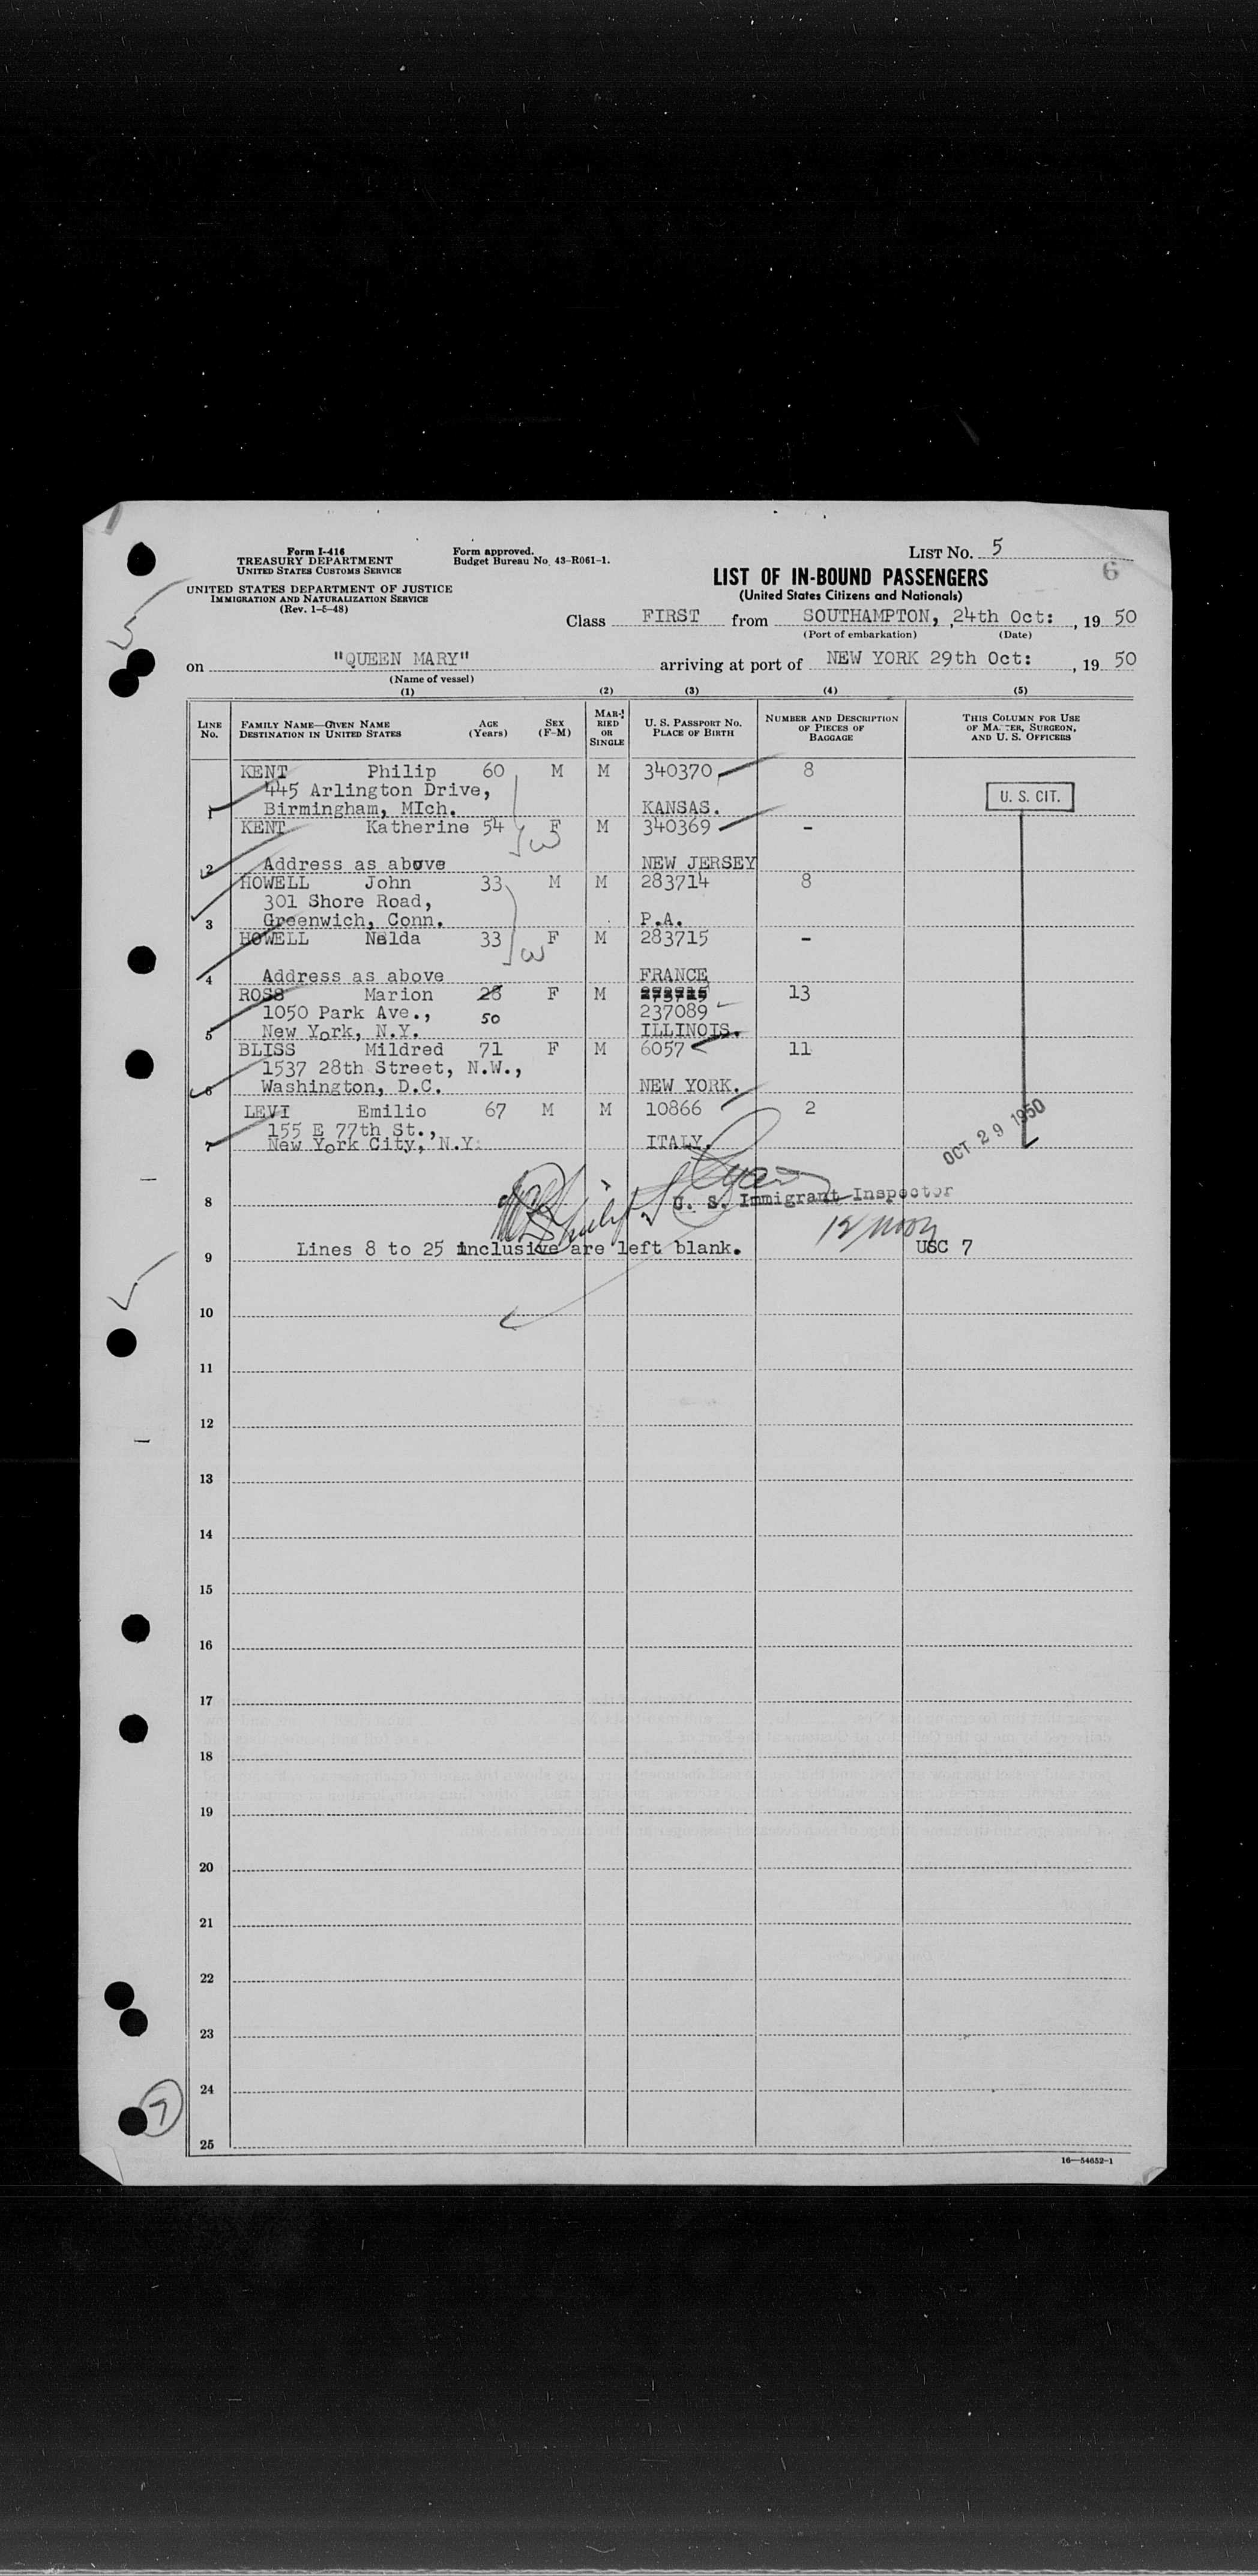 Form I-416
TREASURY DEPARTMENT
UNITED STATES CUSTOMS SERVICE
UNITED STATES DEPARTMENT OF JUSTICE
IMMIGRATION AND NATURALIZATION SERVICE
(Rev. 1-5-48)
Form approved.
Budget Bureau No. 43-R061-1.
LIST NO. 5
6
LIST OF IN-BOUND PASSENGERS
(United States Citizens and Nationals)
Class FIRST from SOUTHAMPTON, 24th Oct: , 19 50
(Port of embarkation) (Date)
on "QUEEN MARY" arriving at port of NEW YORK 29th Oct: , 19 50
(Name of vessel)
(1) (2) (3) (4) (5)
LINE No. FAMILY NAME—GIVEN NAME DESTINATION IN UNITED STATES AGE (Years) SEX (F-M) MARRIED OR SINGLE U. S. PASSPORT NO. PLACE OF BIRTH NUMBER AND DESCRIPTION OF PIECES OF BAGGAGE THIS COLUMN FOR USE OF MASTER, SURGEON, AND U. S. OFFICERS
KENT Philip 60 M M 340370 8
445 Arlington Drive,
U. S. CIT.
1 Birmingham, MIch. KANSAS.
KENT Katherine 54 F M 340369 -
W
2 Address as above NEW JERSEY
HOWELL John 33 M M 283714 8
301 Shore Road,
3 Greenwich, Conn. P.A.
HOWELL Nelda 33 F M 283715 -
W
4 Address as above FRANCE
ROSS Marion 28 F M 273715 13
1050 Park Ave., 50 237089
5 New York, N.Y. ILLINOIS.
BLISS Mildred 71 F M 6057 11
1537 28th Street, N.W.,
6 Washington, D.C. NEW YORK.
LEVI Emilio 67 M M 10866 2
155 E 77th St.,
7 New York City, N.Y. ITALY.
OCT 29 1950
8 U. S. Immigrant Inspector
12/noon
Lines 8 to 25 inclusive are left blank. USC 7
9
10
11
12
13
14
15
16
17
18
19
20
21
22
23
24
7
25
16—54652-1